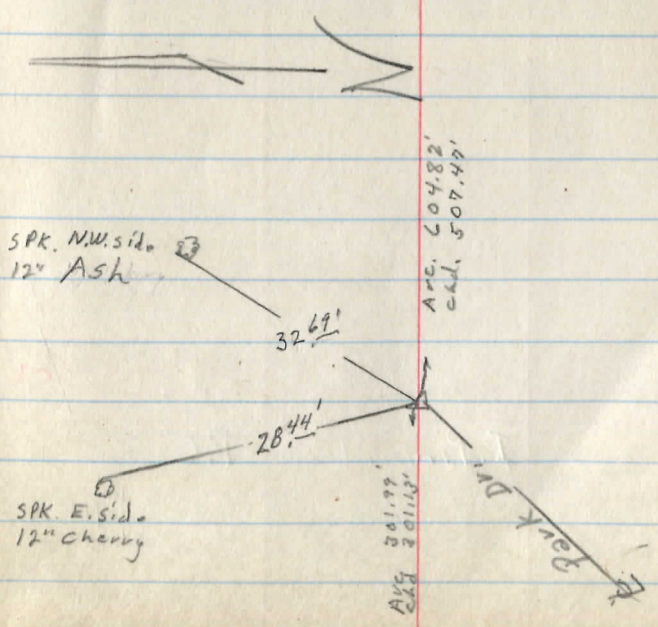 Arc. 604.82'
chd. 507.47'
SPK. N.W. side
12" Ash
32.69'
28.44'
SPK. E. side
12" Cherry
Arc 301.99'
chd 301.13'
Park Dr.